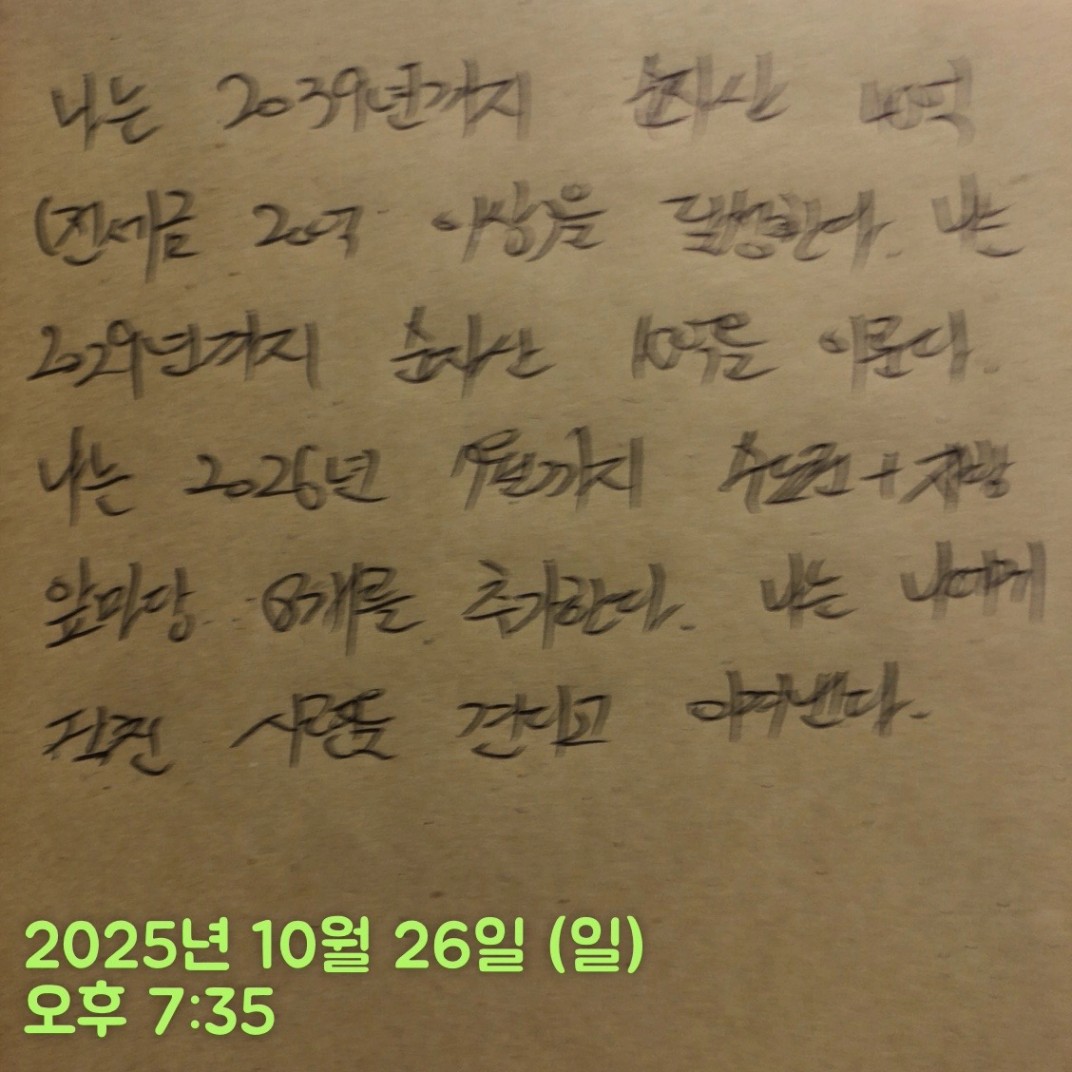 나는 2039년까지 순자산 40억
(전세금 20억 이상)을 달성한다. 나는
2029년까지 순자산 10억을 이룬다.
나는 2026년 까지 수도권+지방
앞마당 8개를 추가한다. 나는 나에게
견디고 이겨낸다.
2025년 10월 26일 (일)
오후 7:35